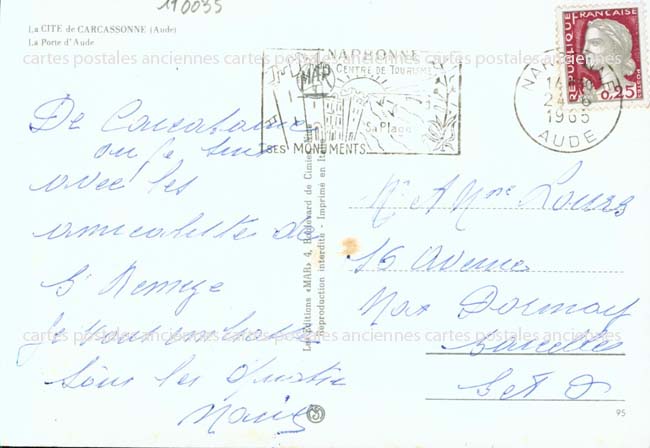 110035
La CITE de CARCASSONNE (Aude)
La Porte d'Aude
cartes postales anciennes cartes postales anciennes cartes postales anciennes
NARBONNE
CENTRE DE TOURISME
MAR
Sa Plage
SES MONUMENTS
NARBONNE
1965
AUDE
REPUBLIQUE FRANÇAISE
0,25
POSTES
De Carcassonne
ou je suis
avec les
amicalistes de
St Remy
Je vous embrasse
tous les quatre
Les Editions «MAR» 4, Boulevard de Cimiez
Reproduction interdite - Imprimé en
Mr & Mme Louis
16 Avenue
Max Dormoy
Sarcelles
S et O
cartes postales anciennes cartes postales anciennes cartes postales anciennes
95